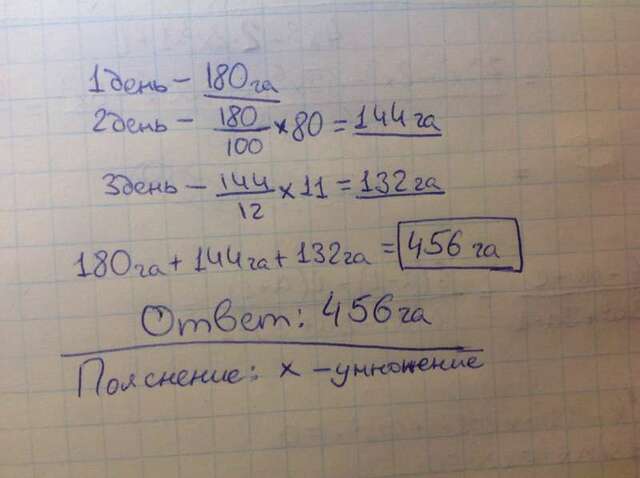 1 день - 180 га
2 день - 180/100 × 80 = 144 га
3 день - 144/12 × 11 = 132 га
180 га + 144 га + 132 га = 456 га
Ответ: 456 га
Пояснение: × - умножение